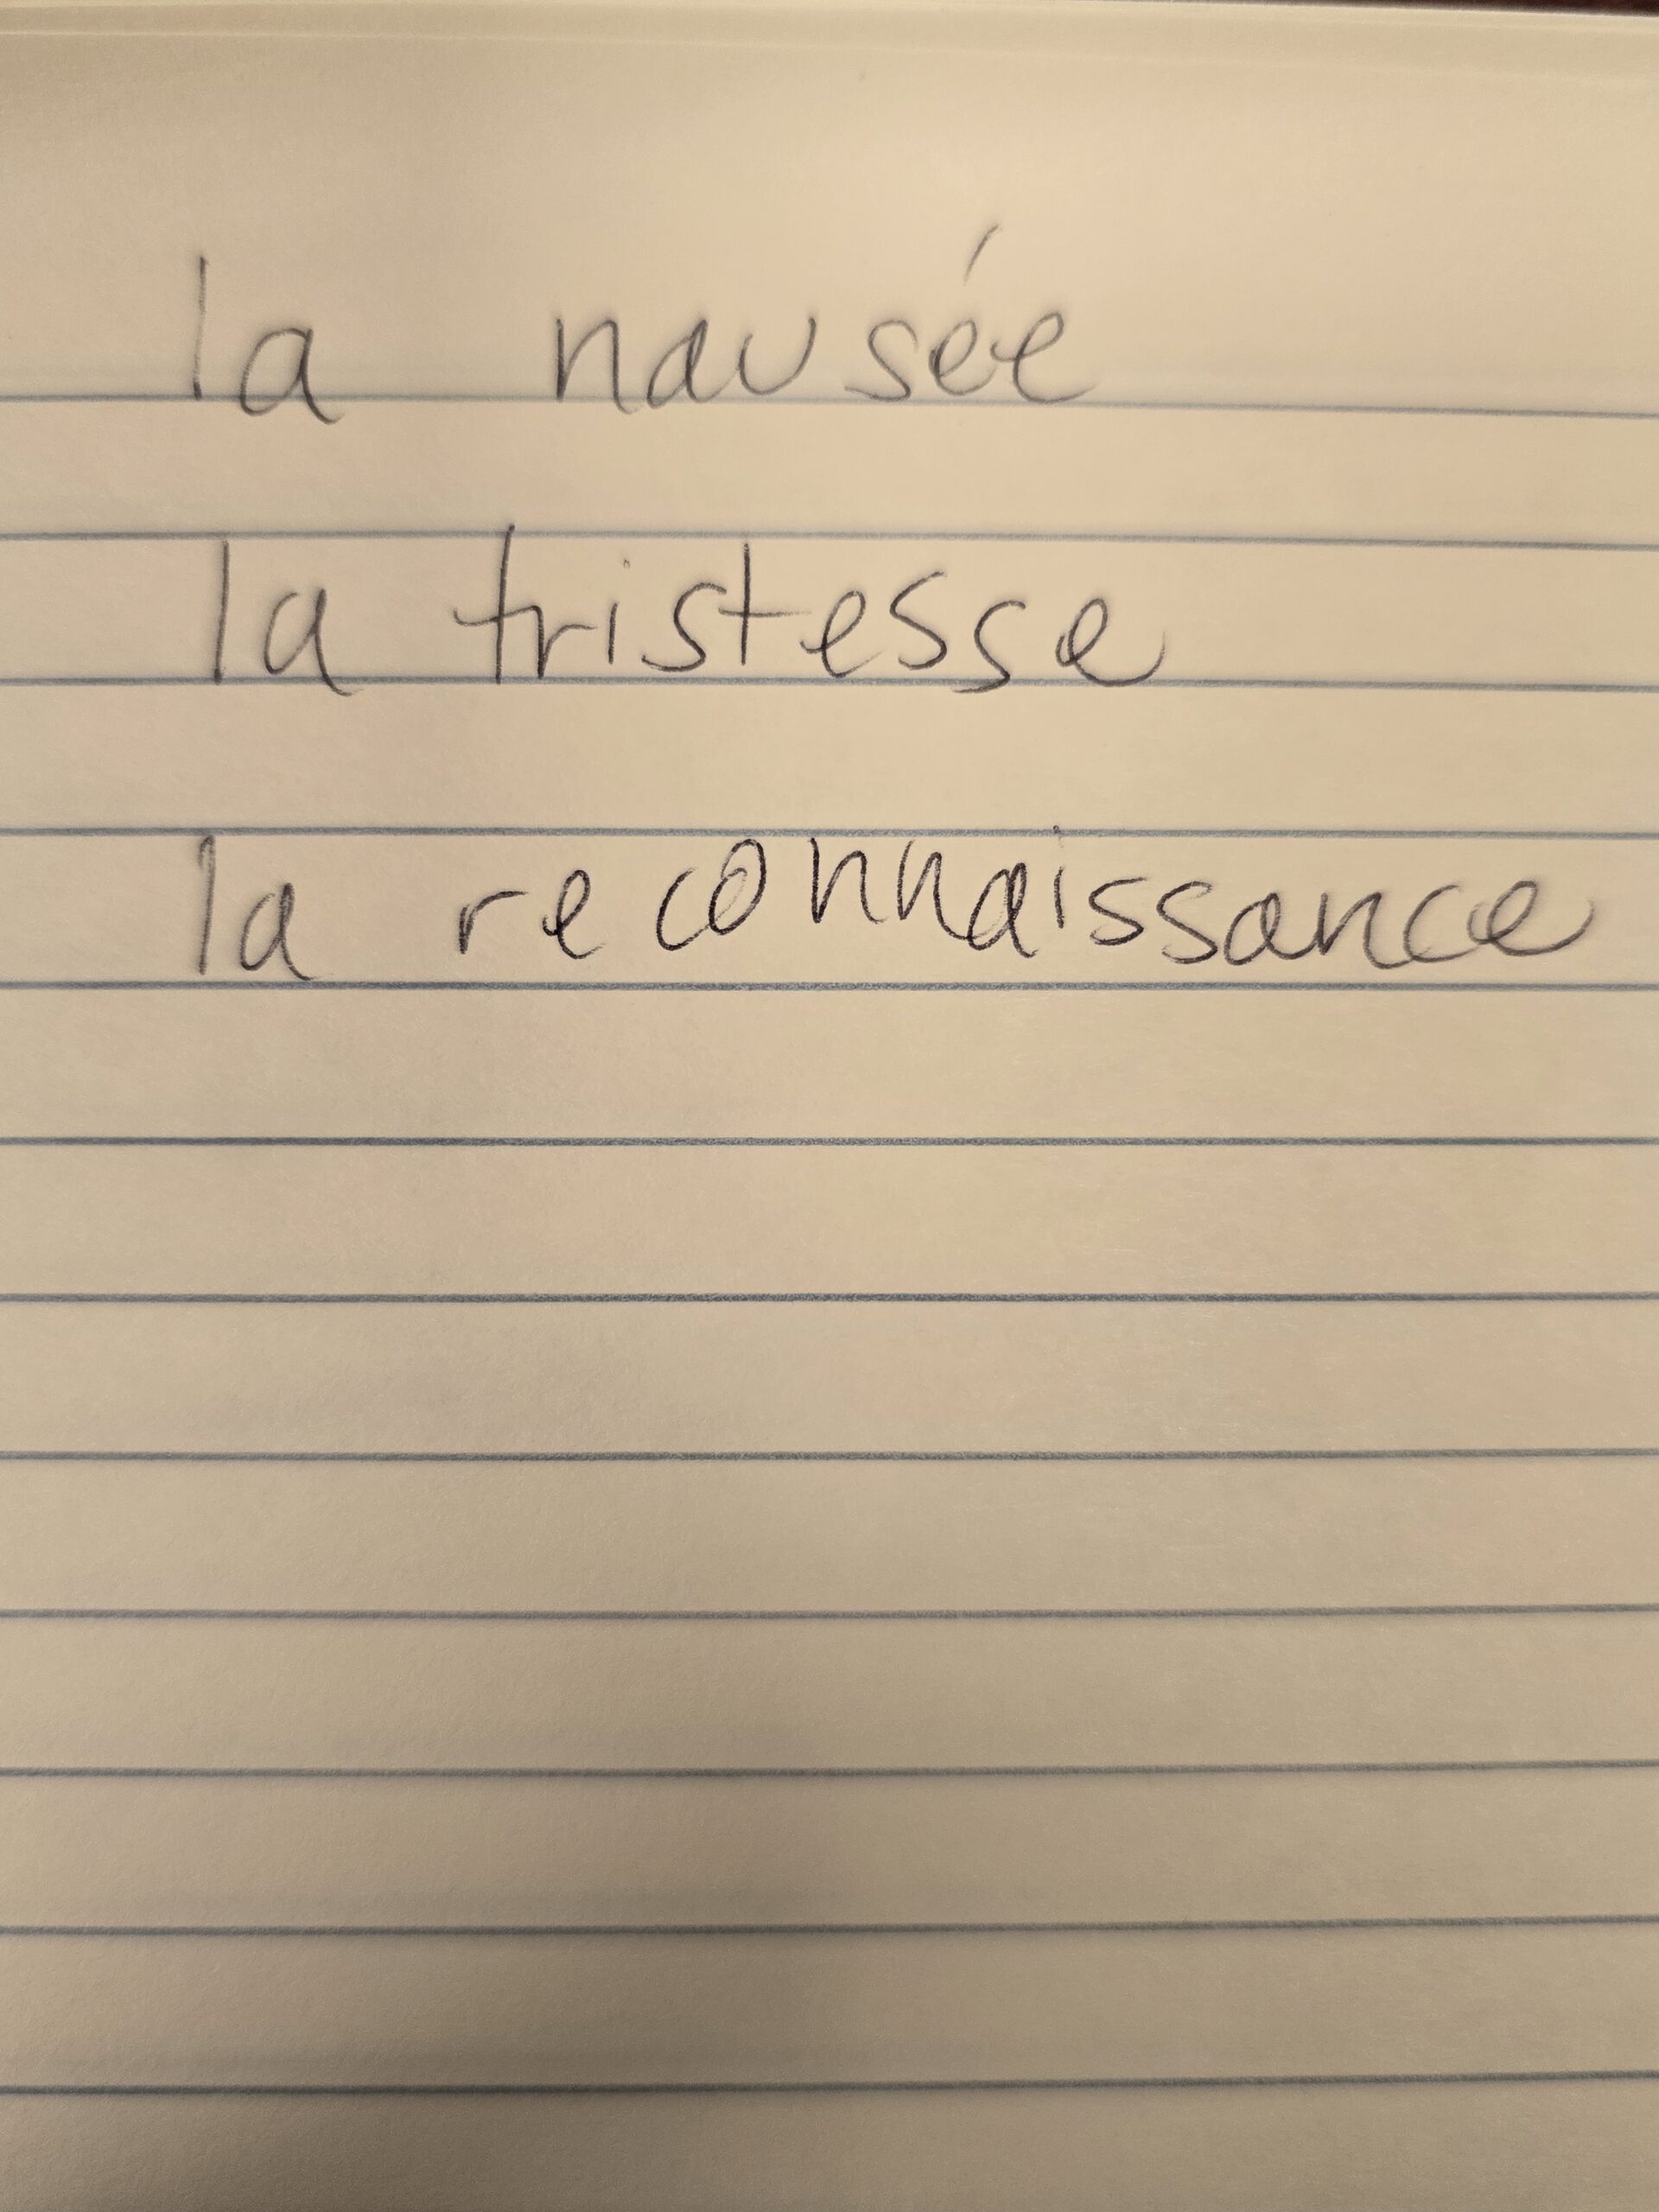 la nausée
la tristesse
la reconnaissance